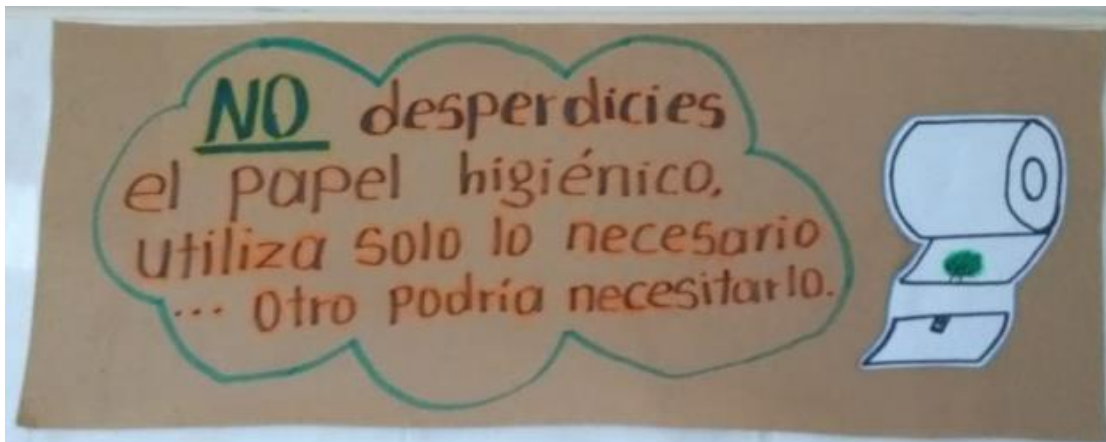 NO desperdicies
el papel higiénico,
utiliza solo lo necesario
... Otro podría necesitarlo.